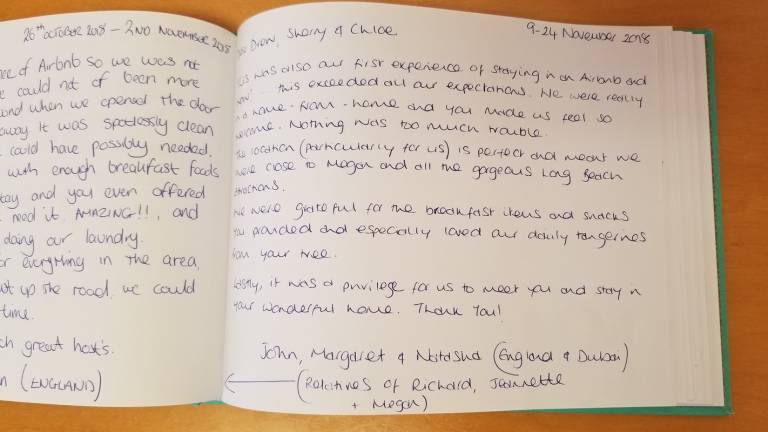 26th OCTOBER 2018 – 2ND NOVEMBER 2018
of Airbnb so we was not
could not of been more
and when we opened the door
away it was spotlessly clean
could have possibly needed.
with enough breakfast foods
and you even offered
need it. AMAZING!!, and
doing our laundry.
everything in the area,
up the road, we could
time.
great host's.
(ENGLAND)
9-24 November 2018
Drew, Sherry & Chloe
was also our first experience of staying in an Airbnb and
... this exceeded all our expectations. We were really
a home-from-home and you made us feel so
welcome. Nothing was too much trouble.
The location (particularly for us) is perfect and meant we
were close to Megan and all the gorgeous Long Beach
attractions.
We were grateful for the breakfast items and snacks
you provided and especially loved our daily tangerines
from your tree.
Lastly, it was a privilege for us to meet you and stay in
your wonderful home. Thank You!
John, Margaret & Natasha (England & Dubai)
(Relatives of Richard, Jeannette
+ Megan)